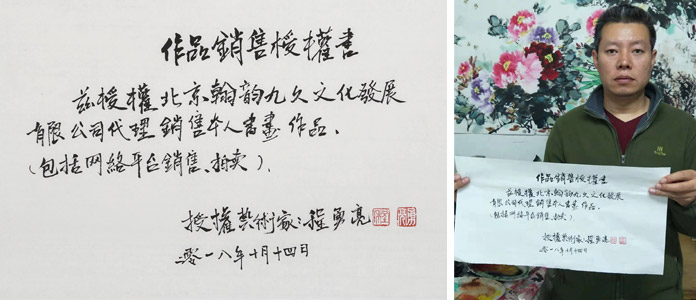 作品銷售授權書
茲授權北京翰韵九久文化發展
有限公司代理銷售本人書畫作品．
（包括网絡平台銷售、拍卖）．
授權藝術家：程勇亮
零一八年十月十四日
作品銷售授權書
茲授權北京翰韵九久文化發展
有限公司代理銷售本人書畫作品．
（包括网絡平台銷售、拍卖）．
授權藝術家：程勇亮
零一八年十月十四日